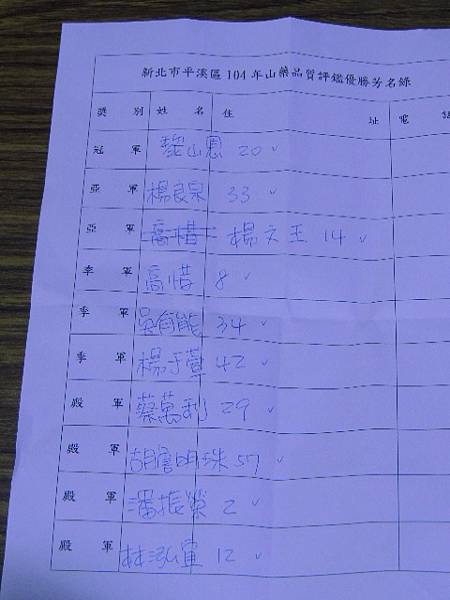 新北市平溪區104年山藥品質評鑑優勝芳名錄
獎別 姓名 住址 電話
冠軍 黎山恩 20 ✓
亞軍 楊良泉 33 ✓
亞軍 高惜 楊文王 14 ✓
季軍 高惜 8 ✓
季軍 吳 能 34 ✓
季軍 楊于萱 42 ✓
殿軍 蔡萬利 29 ✓
殿軍 胡詹明珠 57 ✓
殿軍 潘振榮 2 ✓
殿軍 林泓 12 ✓